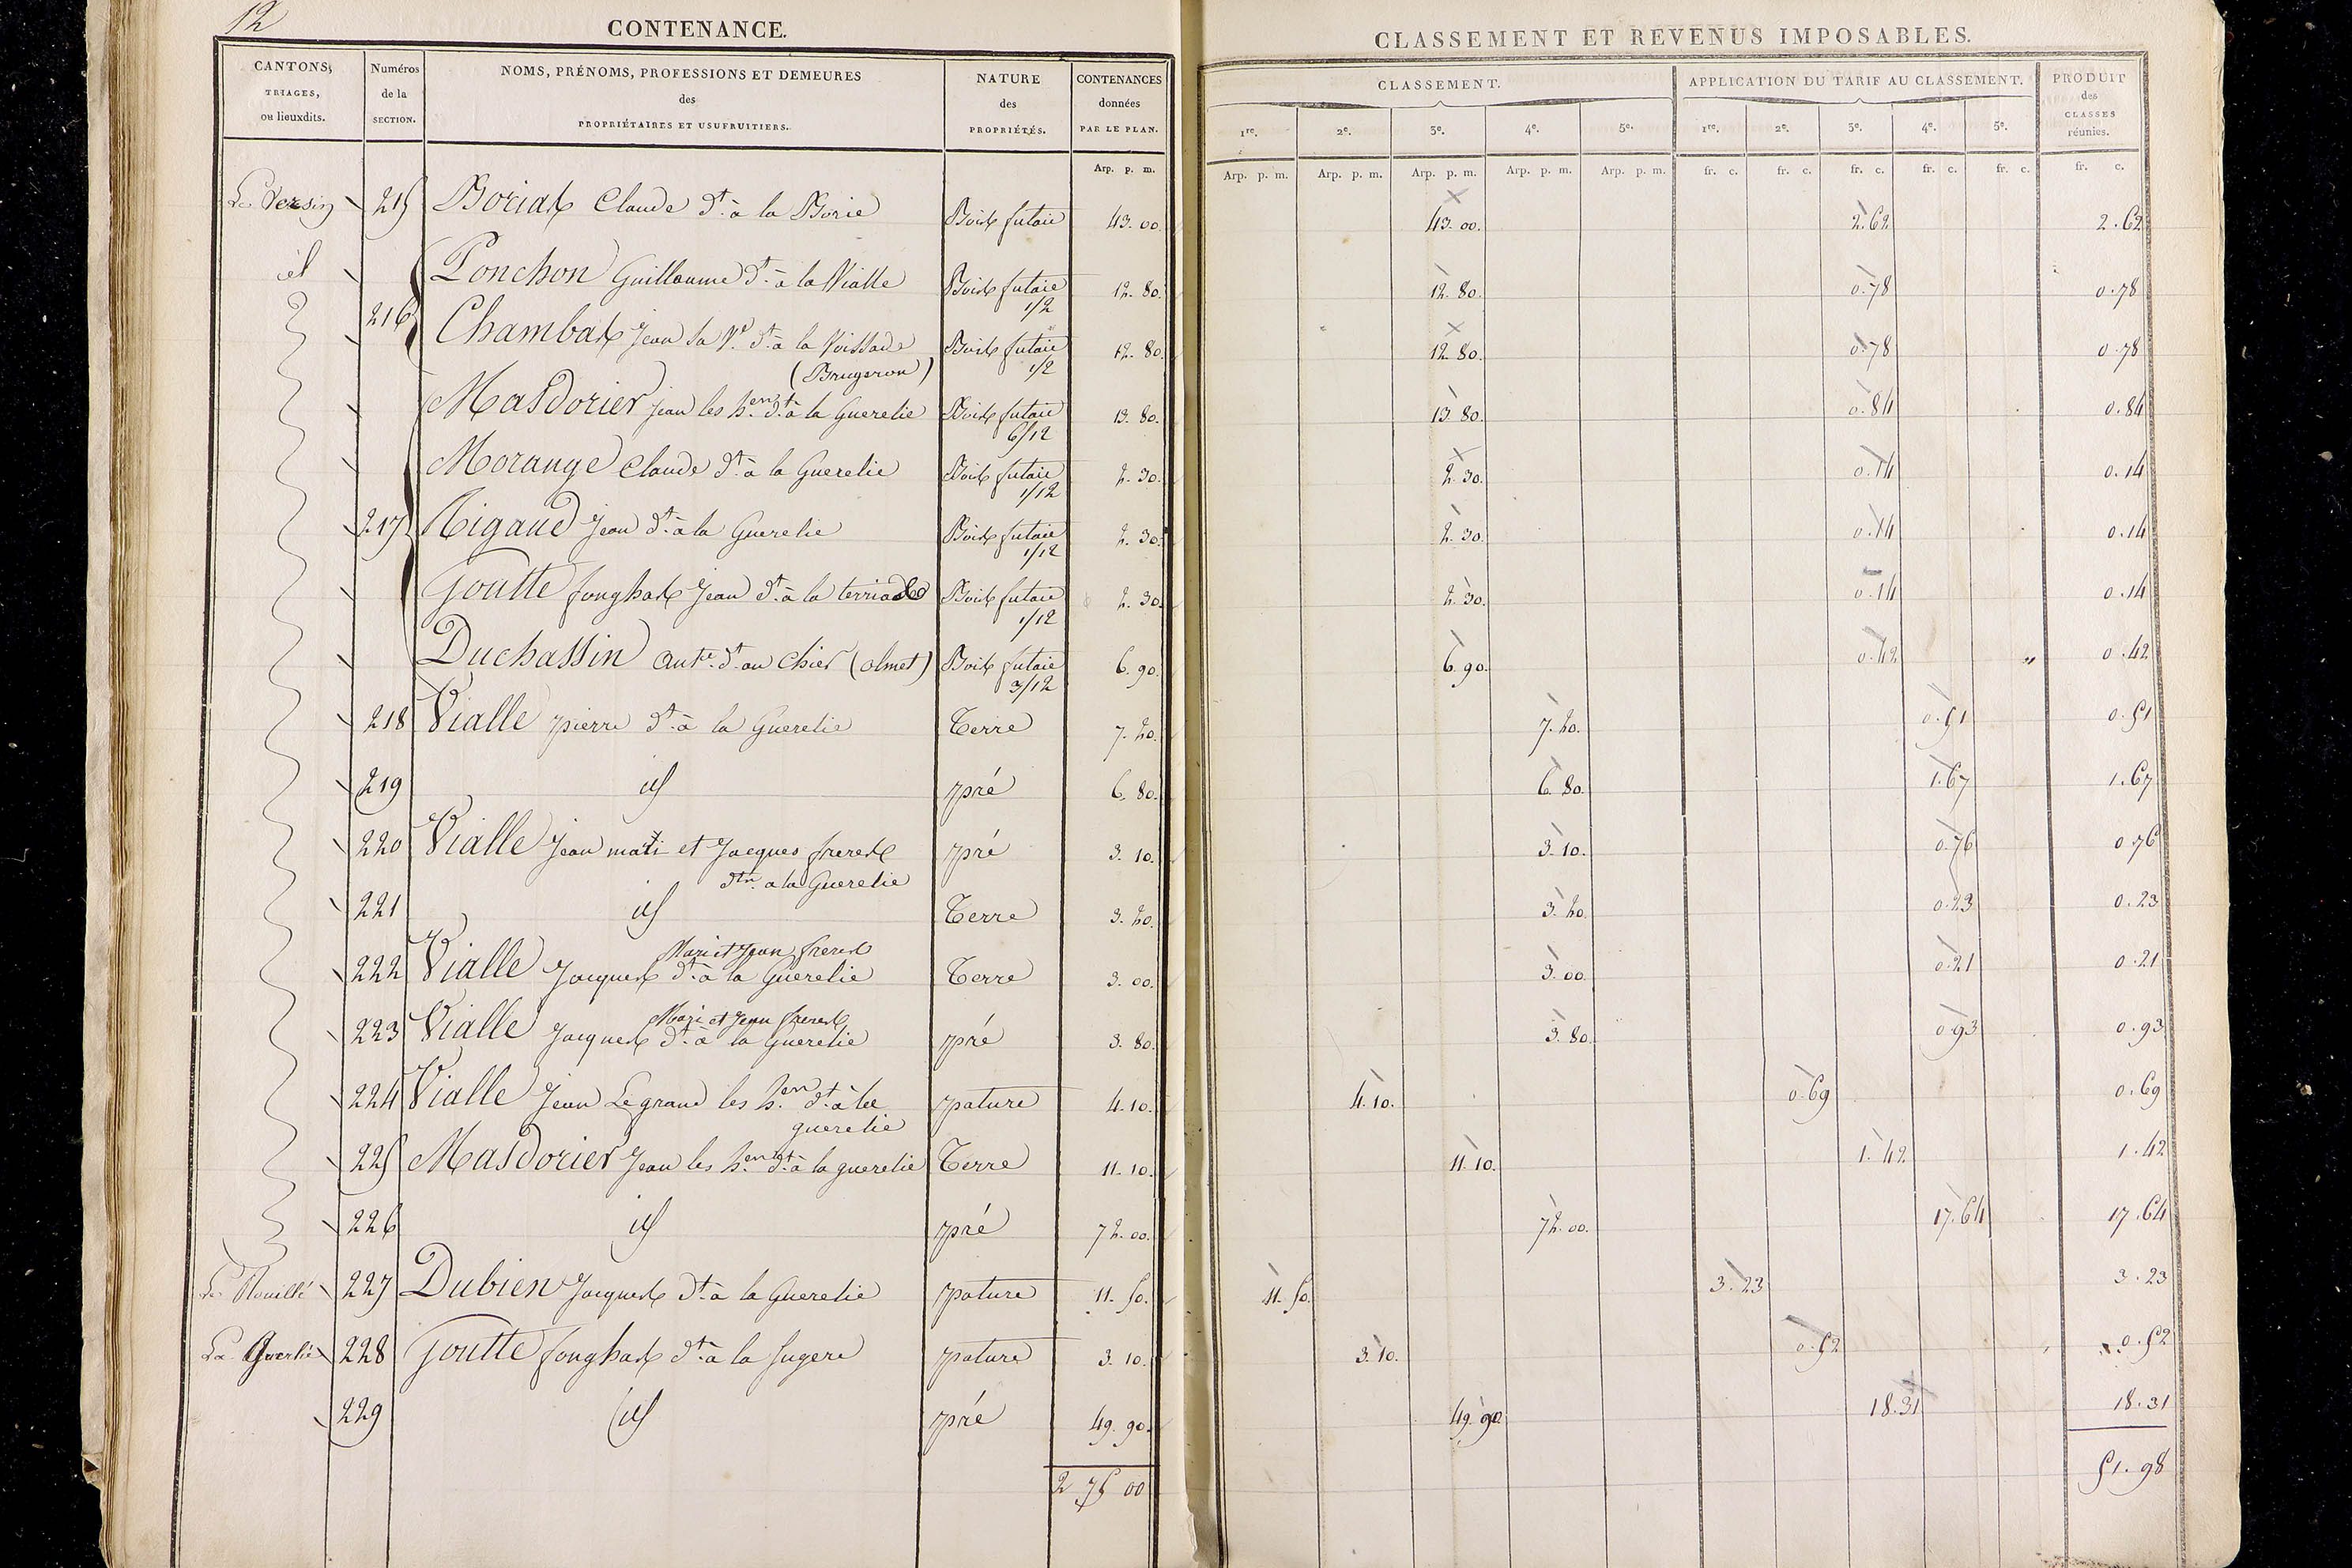 12
CONTENANCE.
CLASSEMENT ET REVENUS IMPOSABLES.
CANTONS, TRIAGES, ou lieuxdits.
Numéros de la SECTION.
NOMS, PRÉNOMS, PROFESSIONS ET DEMEURES des PROPRIÉTAIRES ET USUFRUITIERS.
NATURE des PROPRIÉTÉS.
CONTENANCES données PAR LE PLAN.
CLASSEMENT.
APPLICATION DU TARIF AU CLASSEMENT.
PRODUIT des CLASSES réunies.
1re. 2e. 3e. 4e. 5e. 1re. 2e. 3e. 4e. 5e.
Arp. p. m. Arp. p. m. Arp. p. m. Arp. p. m. Arp. p. m. Arp. p. m. fr. c. fr. c. fr. c. fr. c. fr. c. fr. c.
Le Versin 215 Borias Claude dt. à la Borie Bois futaie 43. 00. 43. 00. 2. 62 2. 62
id 216 Ponchon Guillaume dt. à la Vialle Bois futaie 1/2 12. 80. 12. 80. 0. 78 0. 78
Chambas Jean sa Ve dt. à la Boissade (Brugeron) Bois futaie 1/2 12. 80. 12. 80. 0. 78 0. 78
217 Masdorier Jean les hers dt. à la Guerelie Bois futaie 6/12 13. 80. 13. 80. 0. 84 0. 84
Morange Claude dt. à la Guerelie Bois futaie 1/12 2. 30. 2. 30. 0. 14 0. 14
Rigaud Jean dt. à la Guerelie Bois futaie 1/12 2. 30. 2. 30. 0. 14 0. 14
Goutte fonghas Jean dt. à la Bois futaie 1/12 2. 30. 2. 30. 0. 14 0. 14
Duchassin Ante. dt. au Chier (olmet) Bois futaie 3/12 6. 90. 6. 90. 0. 42 0. 42
218 Vialle pierre dt. à la Guerelie Terre 7. 20. 7. 20. 0. 51 0. 51
219 id pré 6. 80. 6. 80. 1. 67 1. 67
220 Vialle Jean mati et Jacques freres pré 3. 10. 3. 10. 0. 76 0. 76
dts. a la Guerelie
221 id Terre 3. 20. 3. 20. 0. 23 0. 23
Mari et Jean freres
222 Vialle Jacques dt. à la Guerelie Terre 3. 00. 3. 00. 0. 21 0. 21
Mari et Jean freres
223 Vialle Jacques dt. à la Guerelie pré 3. 80. 3. 80. 0. 93 0. 93
224 Vialle Jean Legrand les hers dt. à la pature 4. 10. 4. 10. 0. 69 0. 69
guerelie
225 Masdorier Jean les hers dt. à la guerelie Terre 11. 10. 11. 10. 1. 42 1. 42
226 id pré 72. 00. 72. 00. 17. 64 17. 64
227 Dubien Jacques dt. à la Guerelie pature 11. 50. 11. 50. 3. 23 3. 23
La Querlie 228 Goutte fonghas dt. à la pature 3. 10. 3. 10. 0. 52 0. 52
229 id pré 49. 90. 49. 90 18. 31 18. 31
2 75 00 51. 98